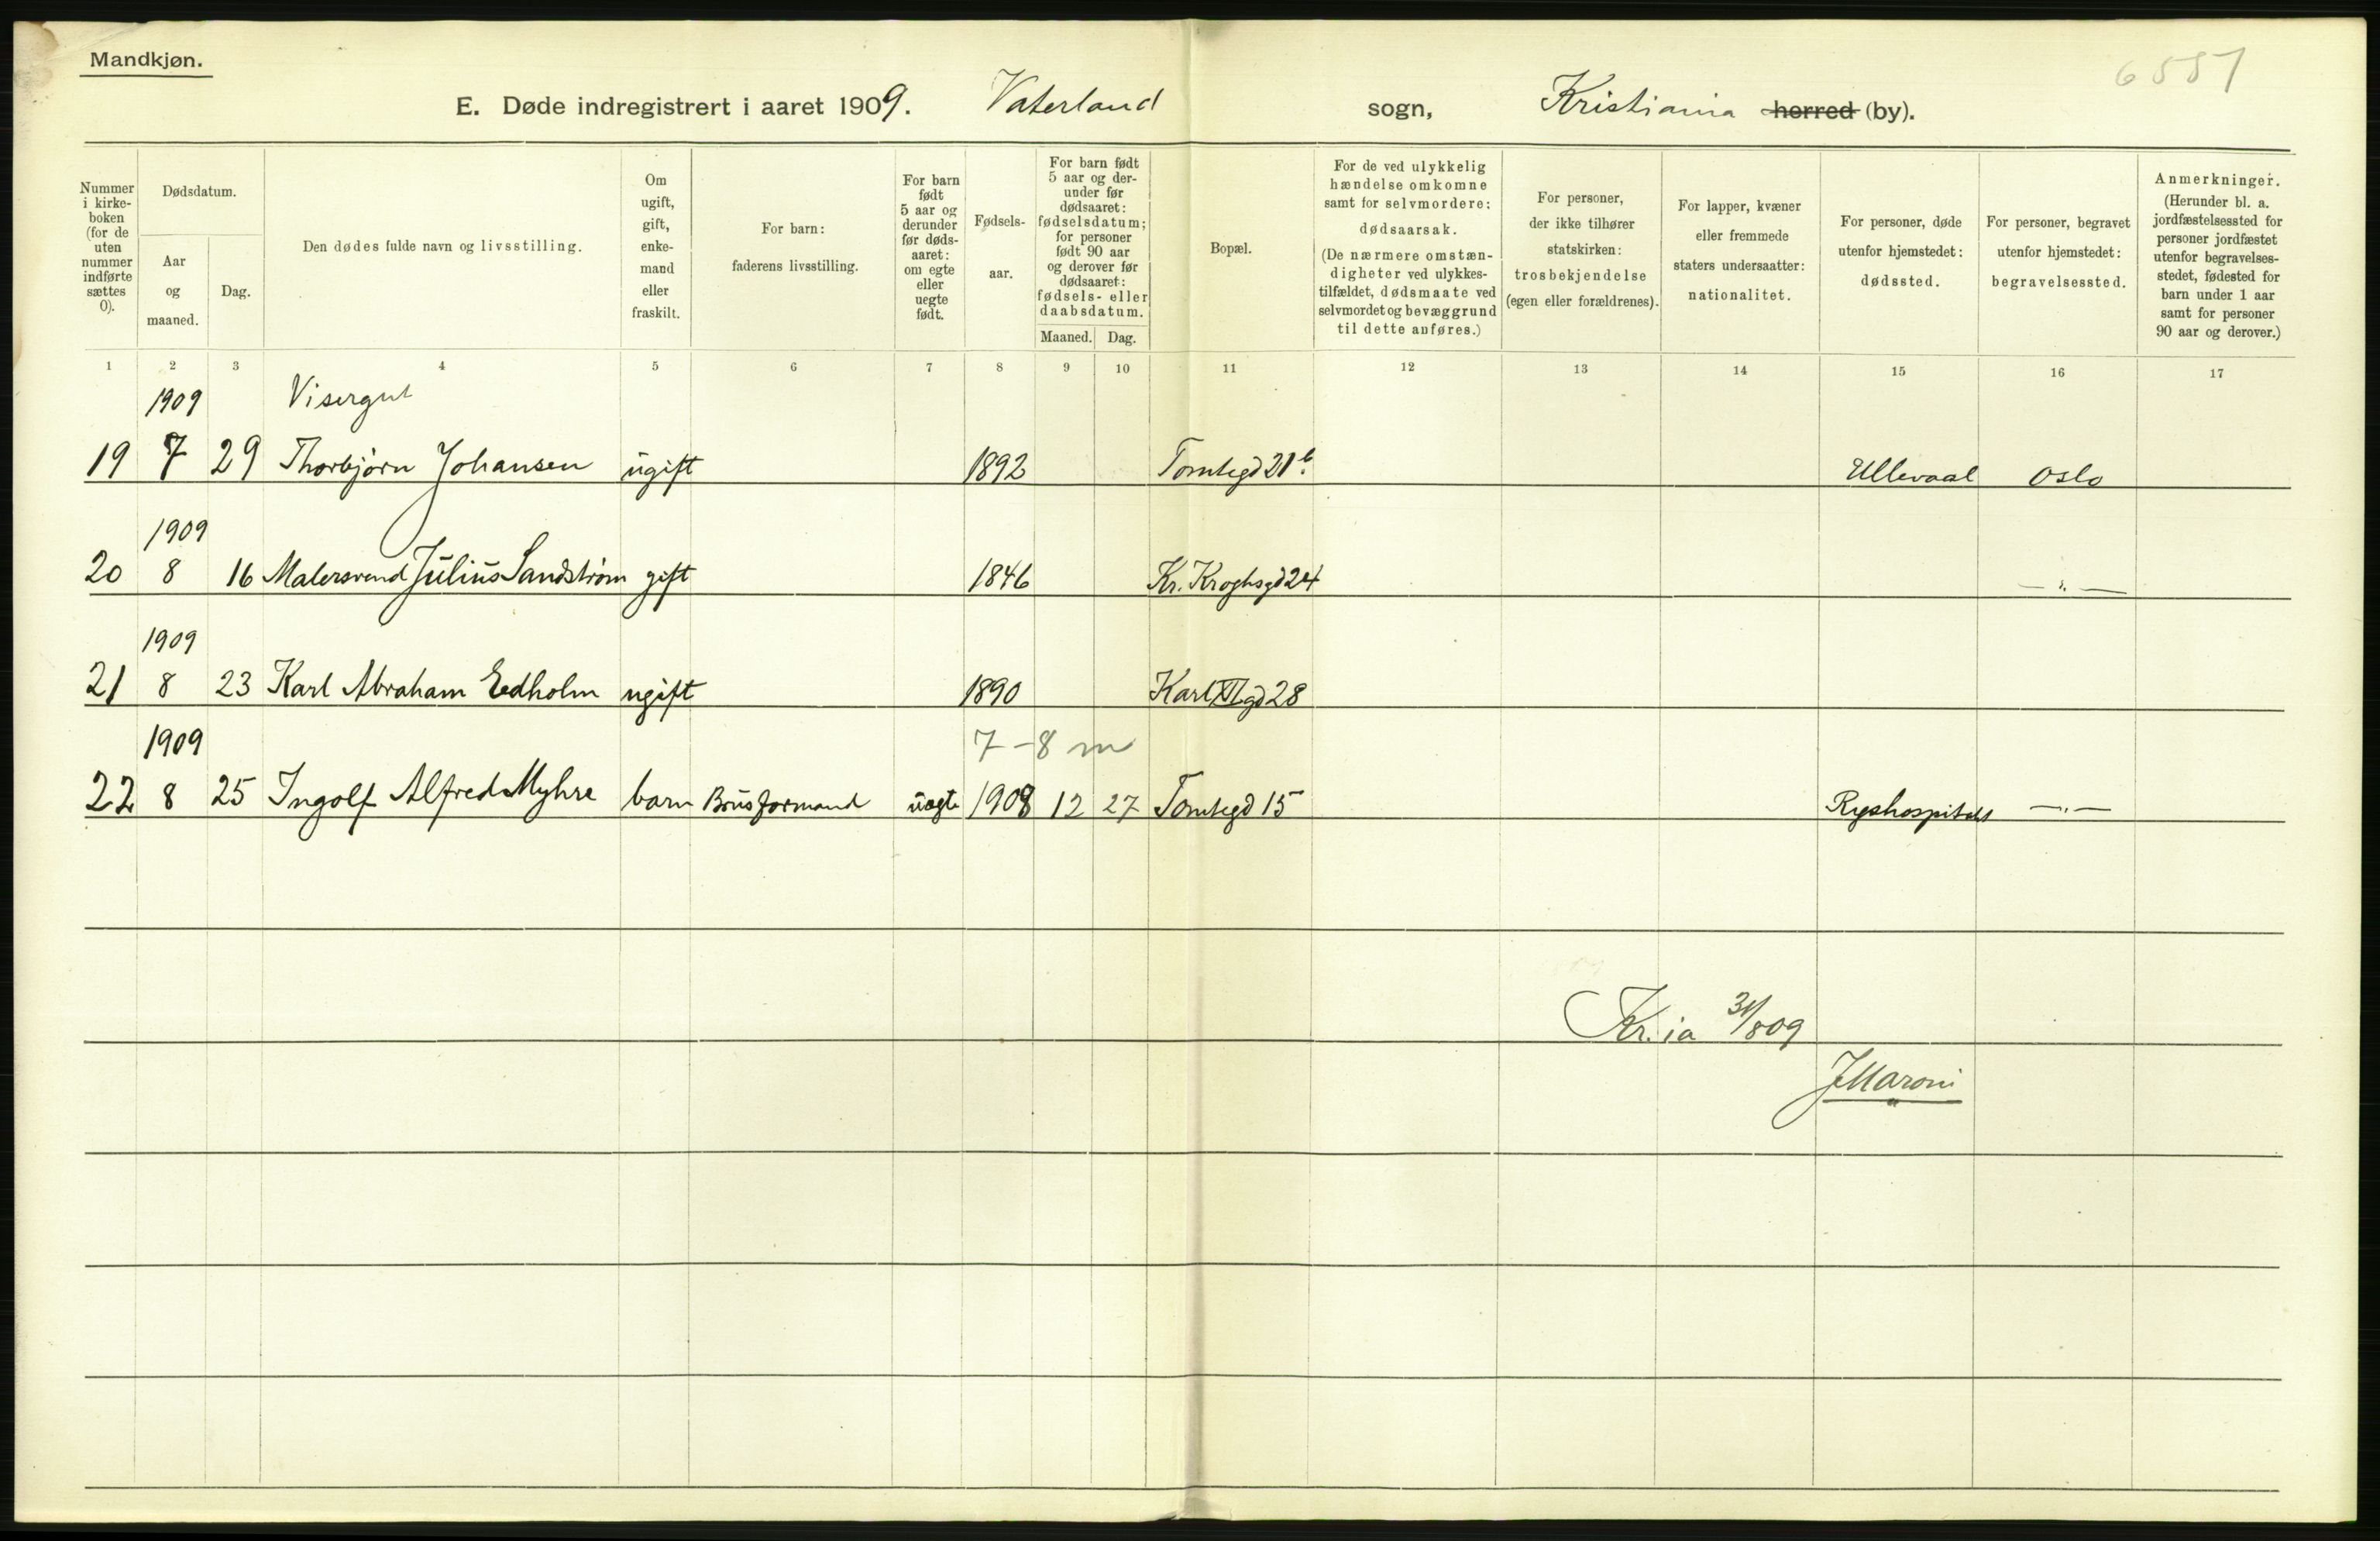 Mandkjøn.
6557
E. Døde indregistrert i aaret 1909. Vaterland sogn, Kristiania herred (by).
Nummer i kirke-boken (for de uten nummer indførte sættes 0).
Dødsdatum.
Aar og maaned.
Dag.
Den dødes fulde navn og livsstilling.
Om ugift, gift, enke-mand eller fraskilt.
For barn: faderens livsstilling.
For barn født 5 aar og derunder før døds-aaret: om egte eller uegte født.
Fødsels-aar.
For barn født 5 aar og der-under før dødsaaret: fødselsdatum; for personer født 90 aar og derover før dødsaaret: fødsels- eller daabsdatum.
Maaned. Dag.
Bopæl.
For de ved ulykkelig hændelse omkomne samt for selvmordere: dødsaarsak. (De nærmere omstæn-digheter ved ulykkes-tilfældet, dødsmaate ved selvmordet og bevæggrund til dette anføres.)
For personer, der ikke tilhører statskirken: trosbekjendelse (egen eller forældrenes).
For lapper, kvæner eller fremmede staters undersaatter: nationalitet.
For personer, døde utenfor hjemstedet: dødssted.
For personer, begravet utenfor hjemstedet: begravelsessted.
Anmerkninger. (Herunder bl. a. jordfæstelsessted for personer jordfæstet utenfor begravelses-stedet, fødested for barn under 1 aar samt for personer 90 aar og derover.)
1 2 3 4 5 6 7 8 9 10 11 12 13 14 15 16 17
1909 Visergut
19 7 29 Thorbjørn Johansen ugift 1892 Tomtegd 21b. Ullevaal Oslo
1909
20 8 16 Malersvend Julius Sandstrøm gift 1846 Kr. Kroghsgd 24 — " —
1909
21 8 23 Karl Abraham Eedholm ugift 1890 Karl XII gd 28
1909 7 - 8 m
22 8 25 Ingolf Alfred Myhre barn Brusformand uegte 1908 12 27 Tomtegd 15 Rigshospitalet — " —
Kr.ia 31/8 09
J Maroni